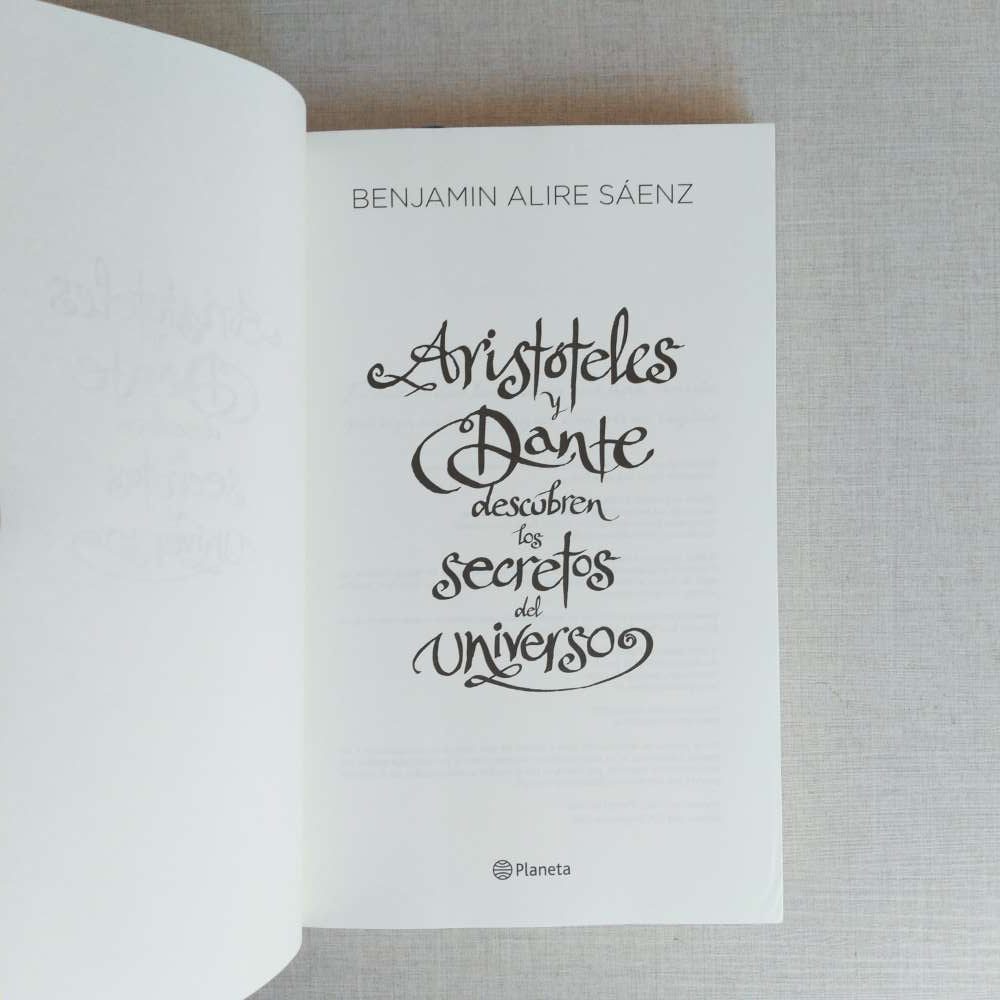 BENJAMIN ALIRE SÁENZ
Aristóteles
y
Dante
descubren
los
secretos
del
universo
Planeta